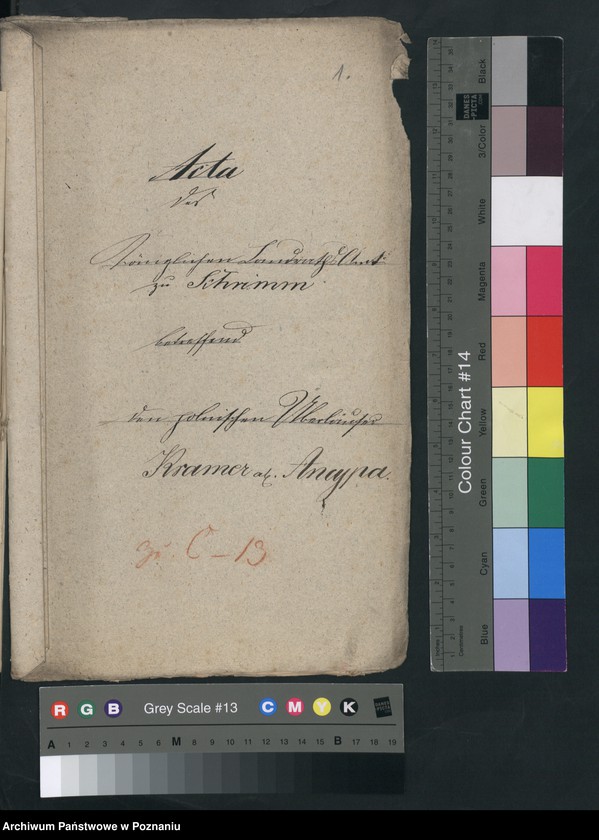 1.
Acta
des
Königlichen Landraths Amt
zu Schrimm
betreffend
den polnischen Überläufer
Kramer al.
zu C-13
Colour Chart #14
Black
3/Color
White
Magenta
Red
Yellow
Green
Cyan
Blue
DANES
-PICTA
.COM
Inches
Centimetres
R G B Grey Scale #13 C M Y K
A 1 2 3 4 5 6 M 8 9 10 11 12 13 14 15 B 17 18 19
Archiwum Państwowe w Poznaniu